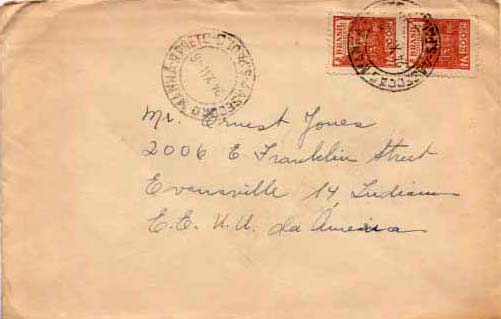 BRASIL BRASIL
Mr. Ernest Jones
2006 E. Franklin Street
Evansville 14 Indiana
E.E. U.U. da América